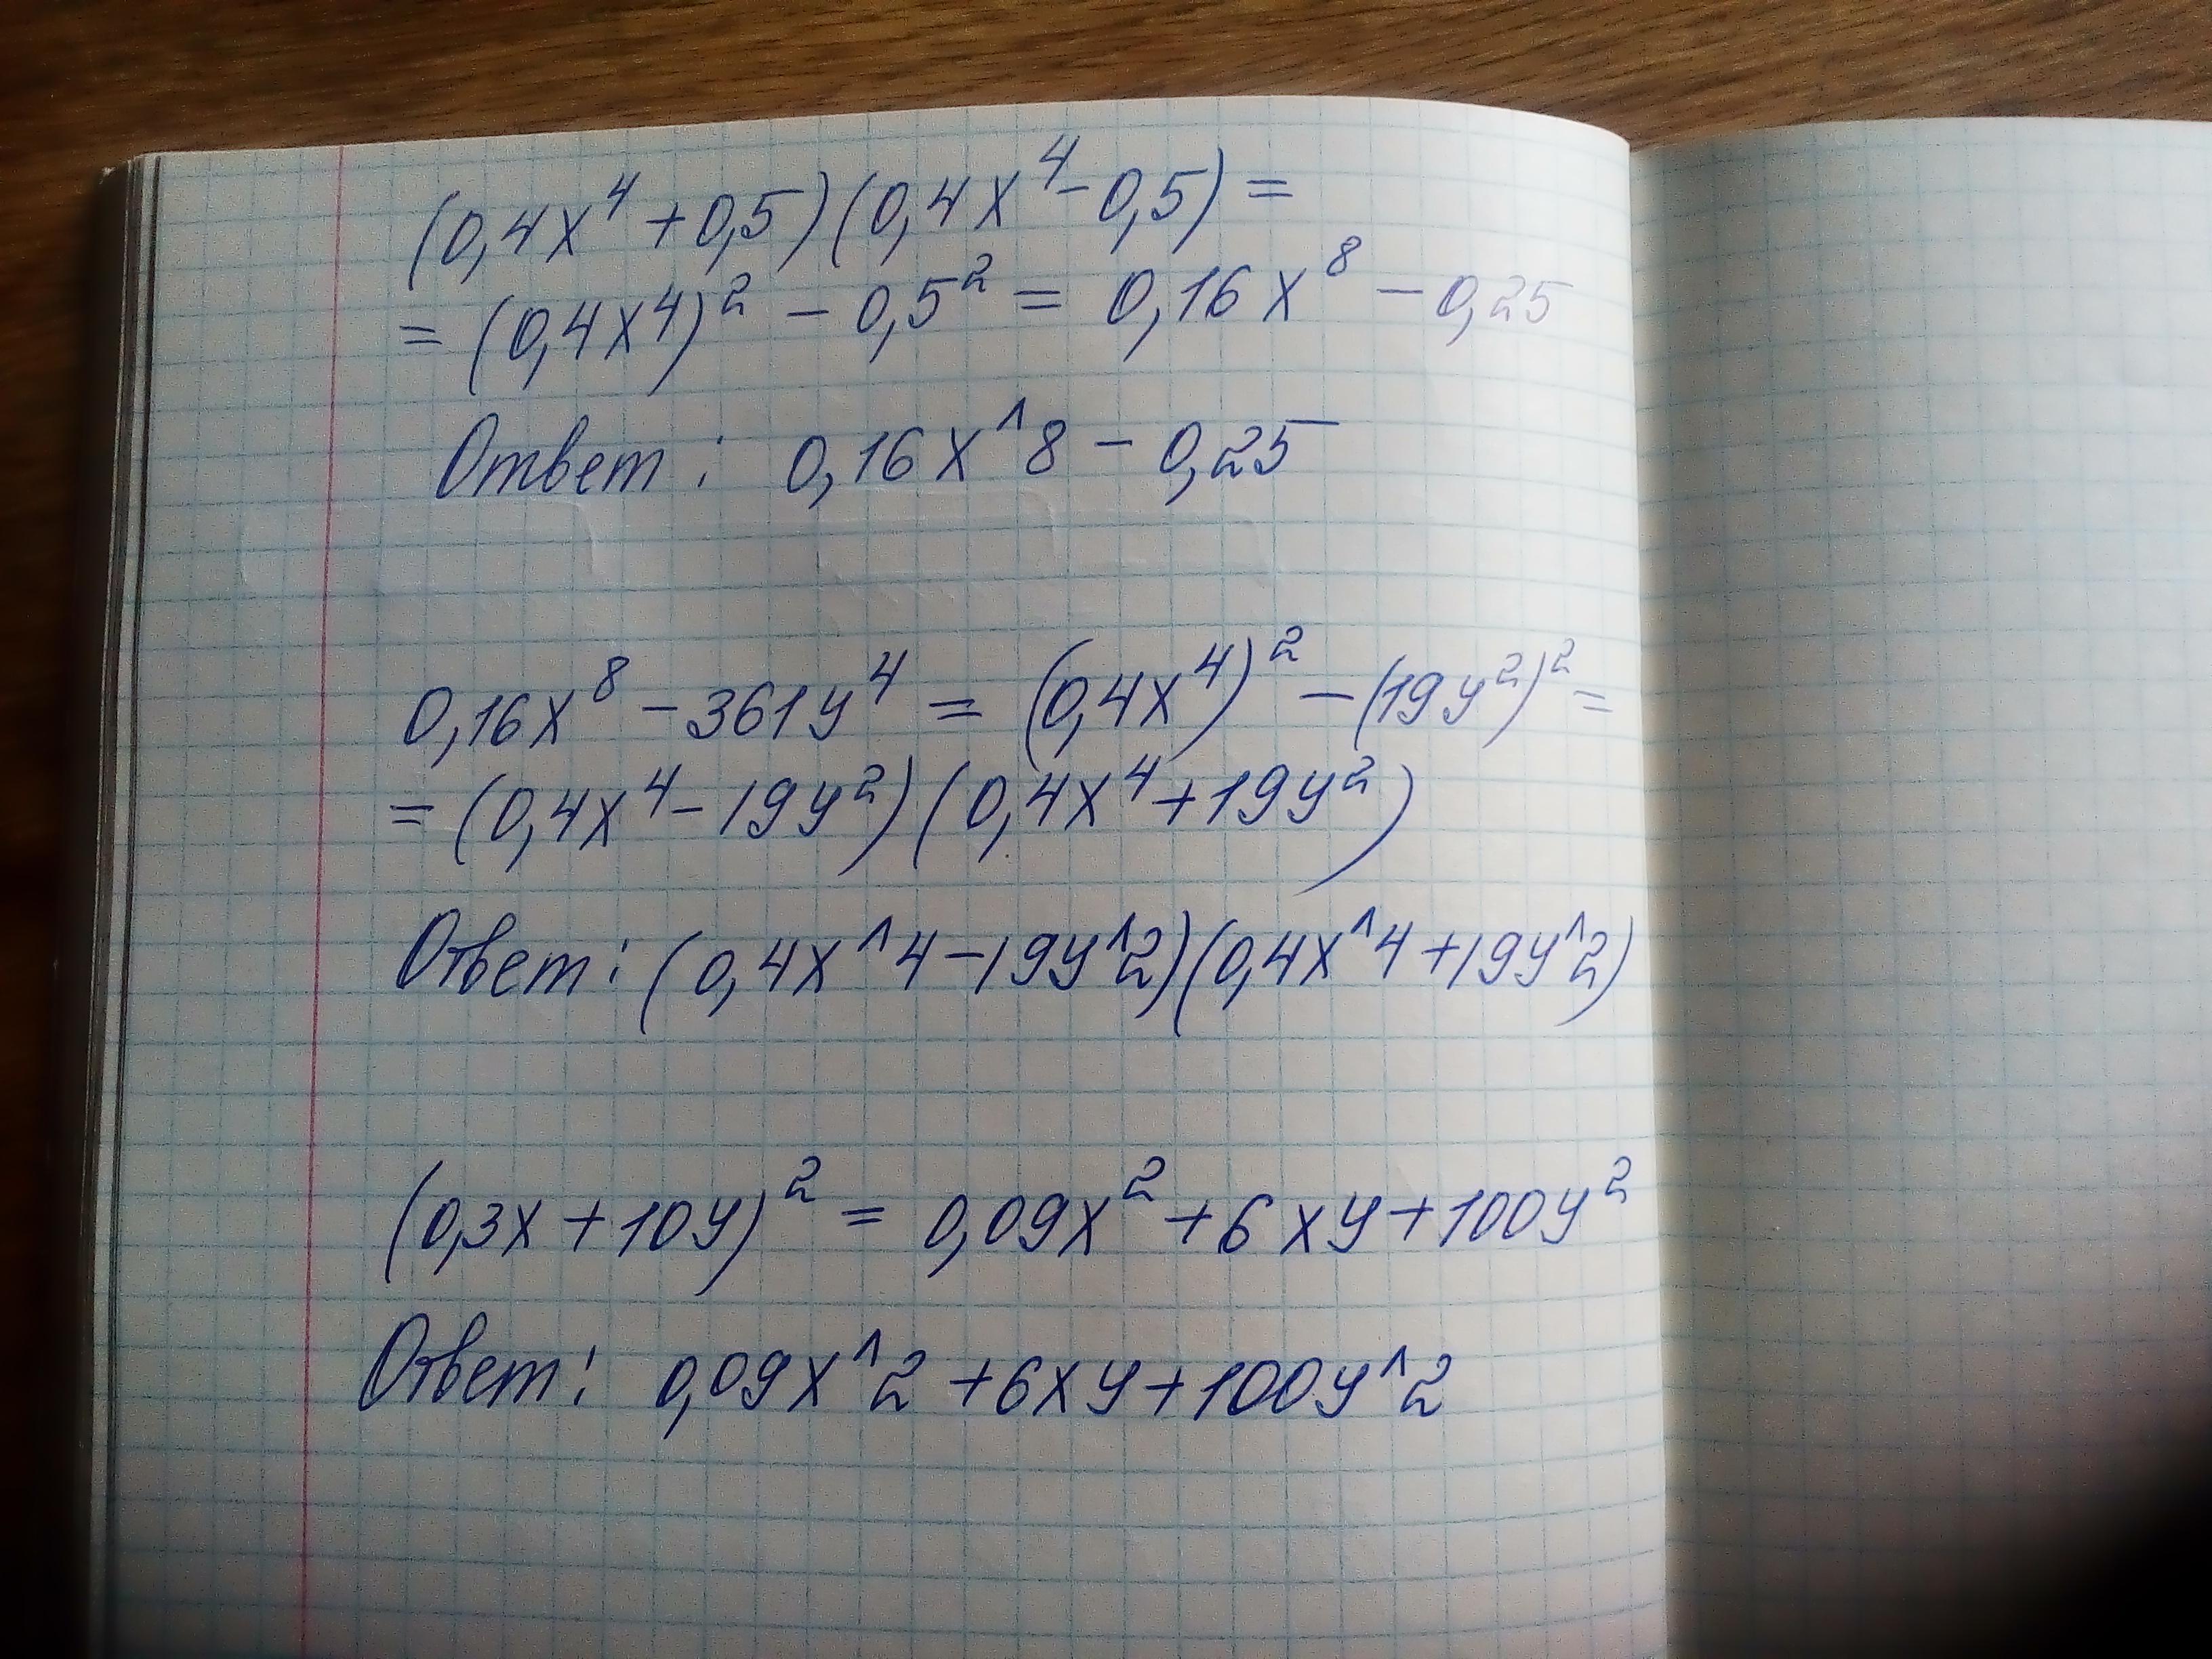 (0,4x⁴+0,5)(0,4x⁴-0,5)=
=(0,4x⁴)²-0,5²=0,16x⁸-0,25
Ответ: 0,16x^8-0,25
0,16x⁸-361y⁴=(0,4x⁴)²-(19y²)²=
=(0,4x⁴-19y²)(0,4x⁴+19y²)
Ответ: (0,4x^4-19y^2)(0,4x^4+19y^2)
(0,3x+10y)²=0,09x²+6xy+100y²
Ответ: 0,09x^2+6xy+100y^2